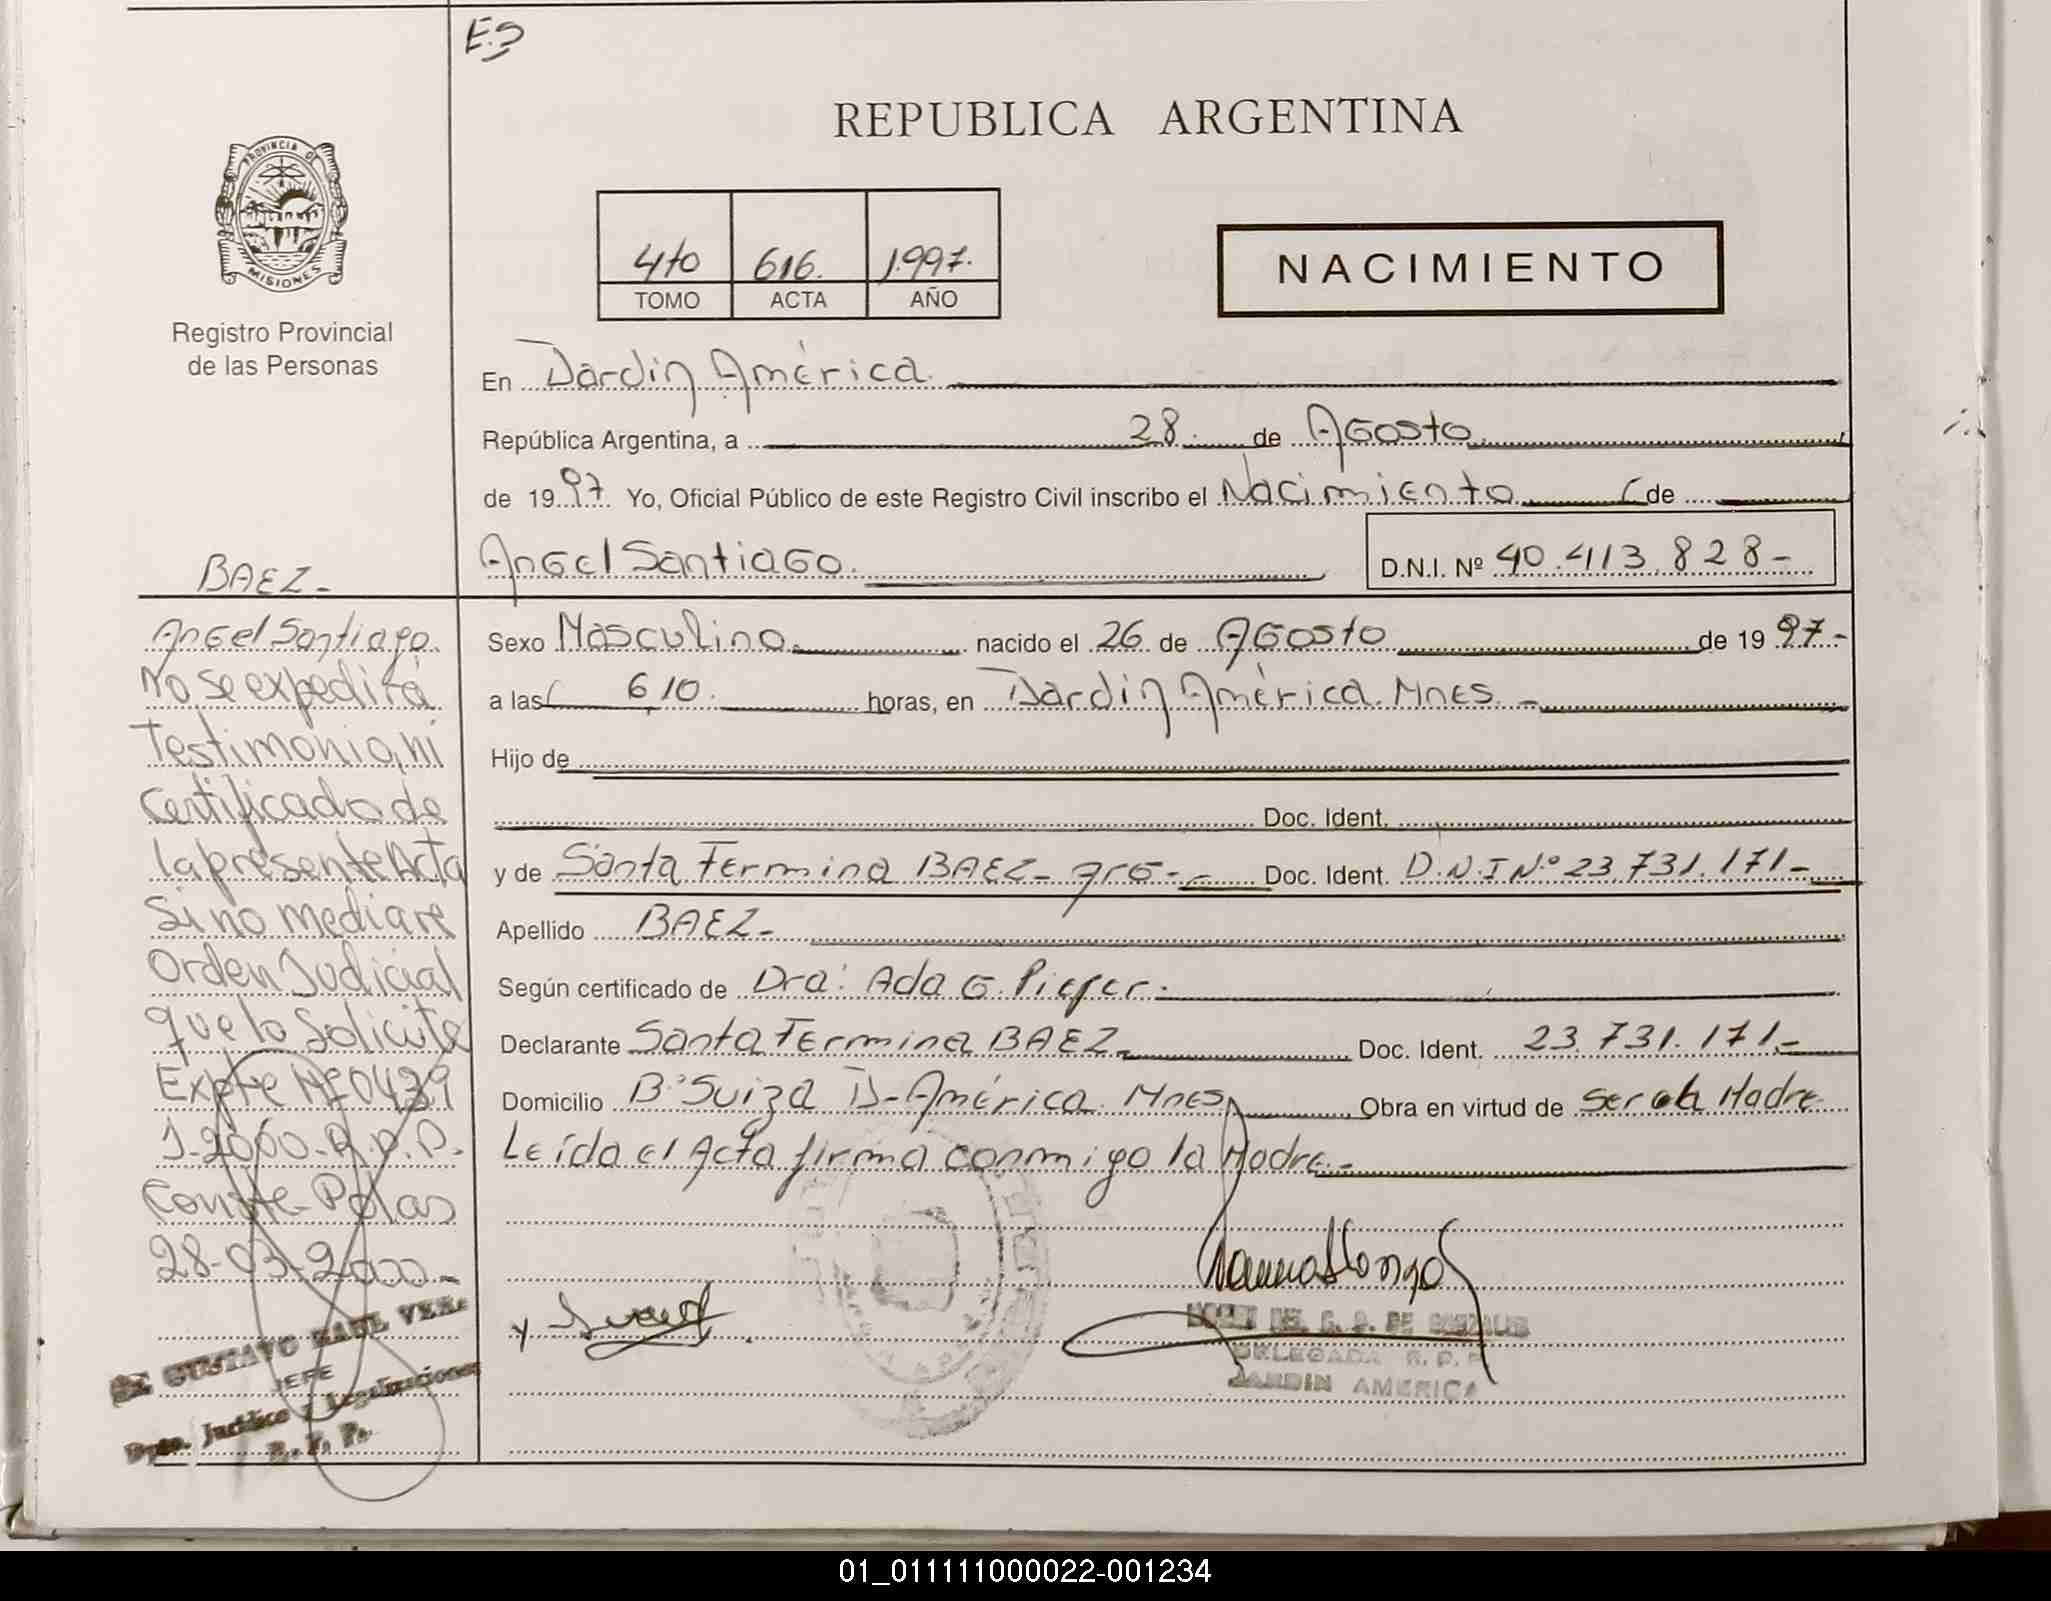 ES
REPUBLICA ARGENTINA
PROVINCIA DE
MISIONES
Registro Provincial
de las Personas
4to 616. 1.997.
TOMO ACTA AÑO
NACIMIENTO
En Jardin América.
República Argentina, a 28 de Agosto
de 1997. Yo, Oficial Público de este Registro Civil inscribo el Nacimiento de
Angel Santiago. D.N.I. Nº 40.413.828-
Sexo Masculino. nacido el 26 de Agosto de 1997-
a las 6,10. horas, en Jardin América. Mnes. -
Hijo de
Doc. Ident.
y de Santa Fermina BAEZ- arg-- Doc. Ident. D.N.I Nº 23.731.171-
Apellido BAEZ-
Según certificado de Dra: Ada G.
Declarante Santa Fermina BAEZ- Doc. Ident. 23.731.171-
Domicilio Bº Suiza J-América. Mnes, Obra en virtud de ser la Madre
Leída el Acta firma conmigo la Madre.-
DELEGADA R.P.P
JARDIN AMERICA
BAEZ-
Angel Santiago.
No se expedirá
Testimonio, ni
Certificado de
la presente Acta
Si no mediare
Orden Judicial
que lo Solicite
Expte Nº 0439
J-2000-R.P.P.
Conste-Pdas
28-03-2000-
GUSTAVO RAUL
JEFE
Dpto. Jurídico y Legalizaciones
R. P. P.
01_011111000022-001234